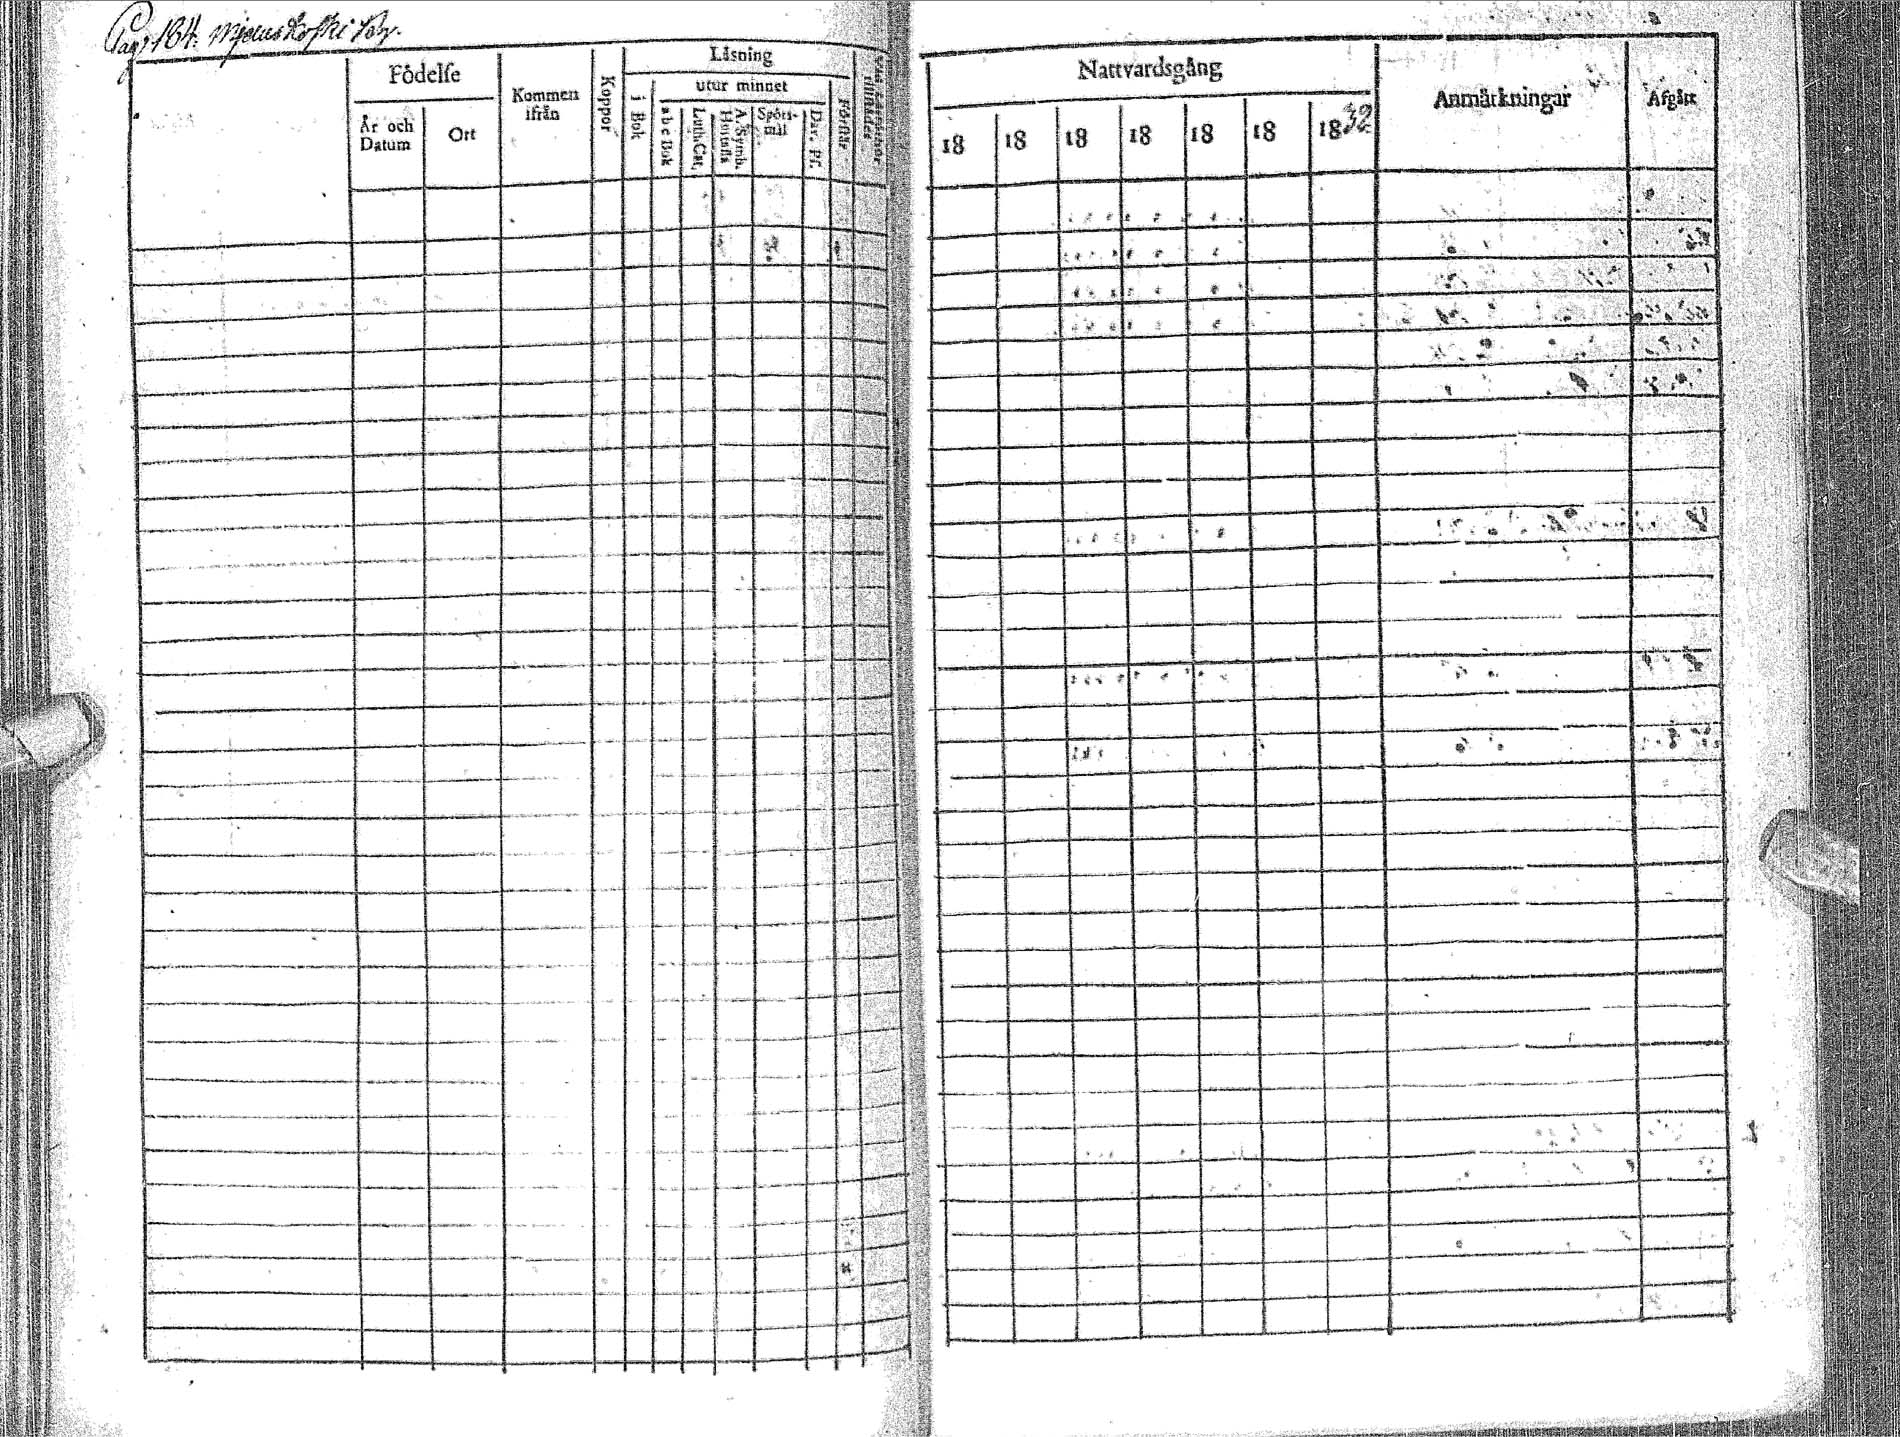 Pag. 184. Mjeluskoski By.
Födelse
År och Datum
Ort
Kommen ifrån
Koppor
Läsning
i Bok
utur minnet
a b c Bok
Luth. Cat.
A. Symb. Hustafla
Spörs-mål
Dav. Ps.
Förstår
Nattvardsgång
18
18
18
18
18
18
1832
Anmärkningar
Afgått